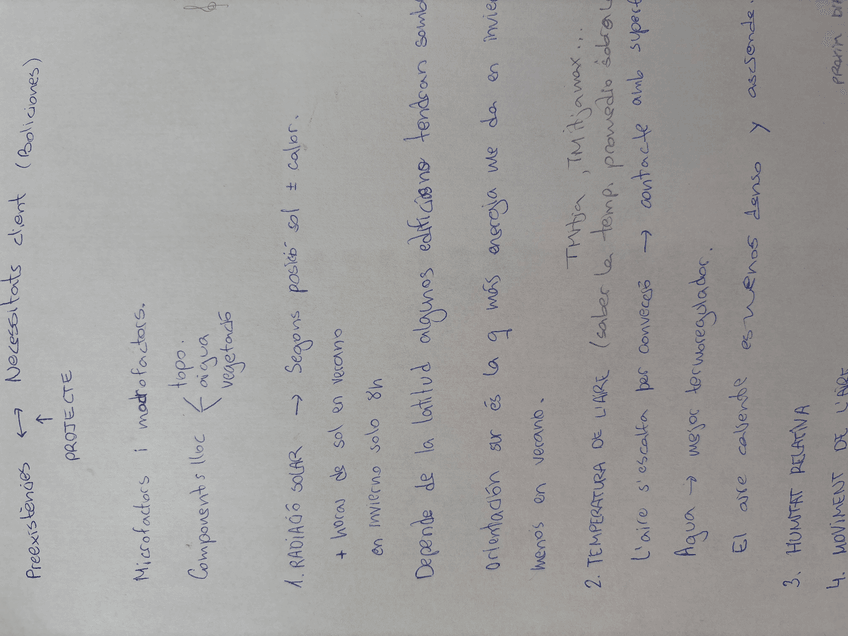 Preexistències ↔ Necessitats client (Boliciones)
↑
PROJECTE
Microfactors i macrofactors.
Components lloc < topo.
aigua
vegetació
1. RADIACIÓ SOLAR → Segons posició sol ± calor.
+ horas de sol en verano
en invierno solo 8h
Depende de la latitud algunos edificios no tendran somb
Orientación sur és la q más energia me da en invier
menos en verano.
TMitja, TMitjamax...
2. TEMPERATURA DE L'AIRE (saber la temp. promedio sobre
L'aire s'escalfa per convecció → contacte amb superf
Agua → mejor termoregulador.
El aire caliente es menos denso y asciende.
3. HUMITAT RELATIVA
4. MOVIMENT DE L'AIRE